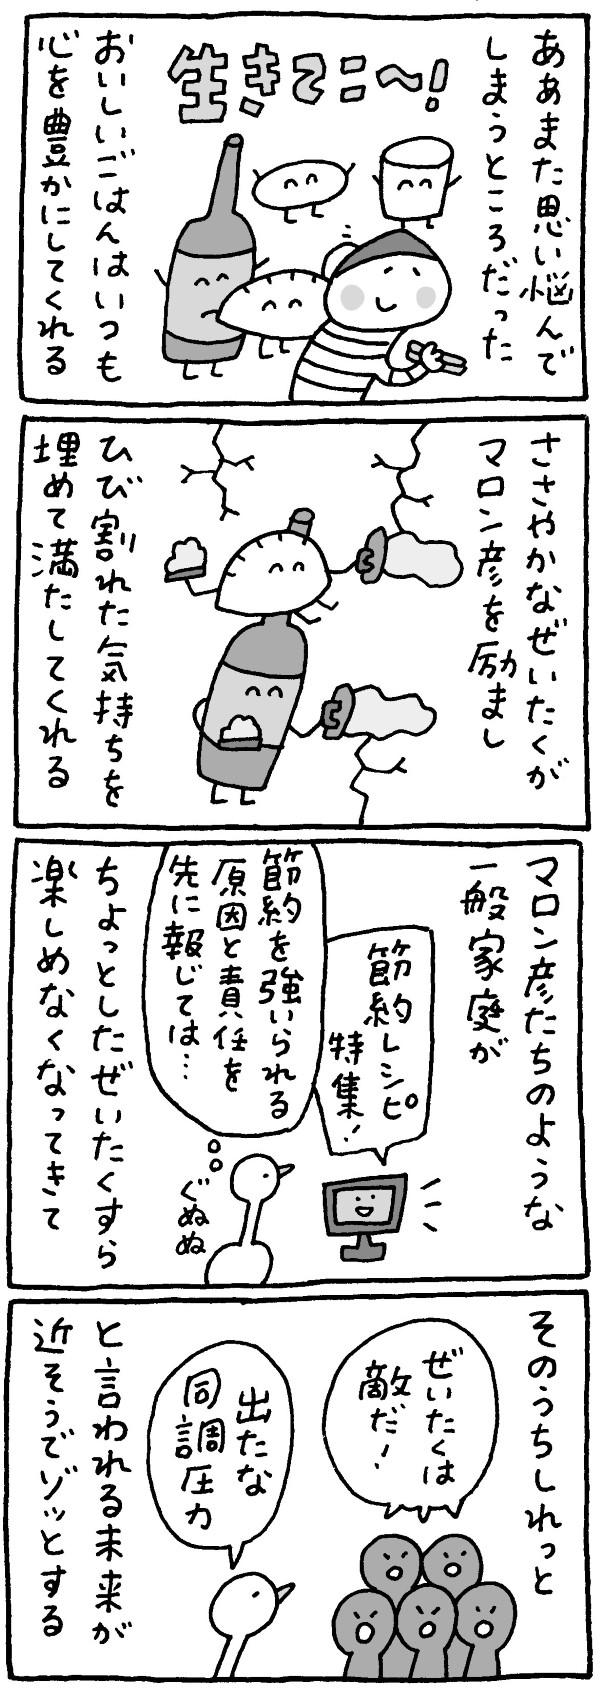 ああまた思い悩んで
しまうところだった
生きてこ〜!
おいしいごはんはいつも
心を豊かにしてくれる
ささやかなぜいたくが
マロン彦を励まし
ひび割れた気持ちを
埋めて満たしてくれる
マロン彦たちのような
一般家庭が
節約レシピ
特集!
節約を強いられる
原因と責任を
先に報じては…
ぐぬぬ
ちょっとしたぜいたくすら
楽しめなくなってきて
そのうちしれっと
ぜいたくは
敵だ!
出たな
同調圧力
と言われる未来が
近そうでゾッとする